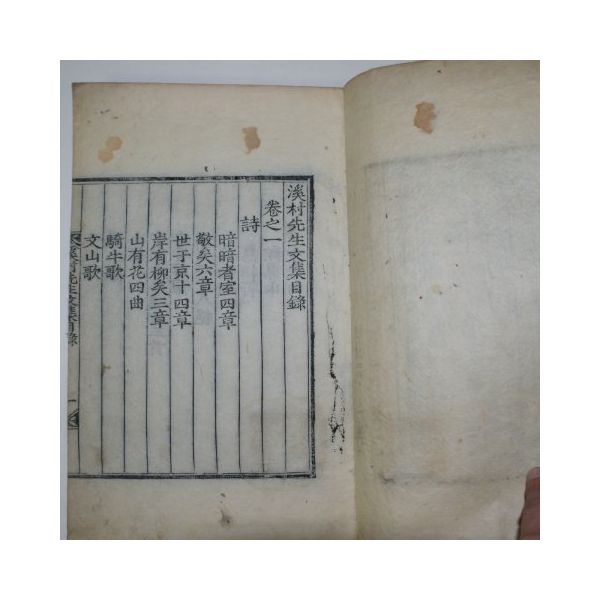 溪村先生文集目錄
卷之一
詩
暗暗者室四章
敬矣六章
世于京十四章
岸有柳矣三章
山有花四曲
騎牛歌
文山歌
溪村先生文集目錄
一